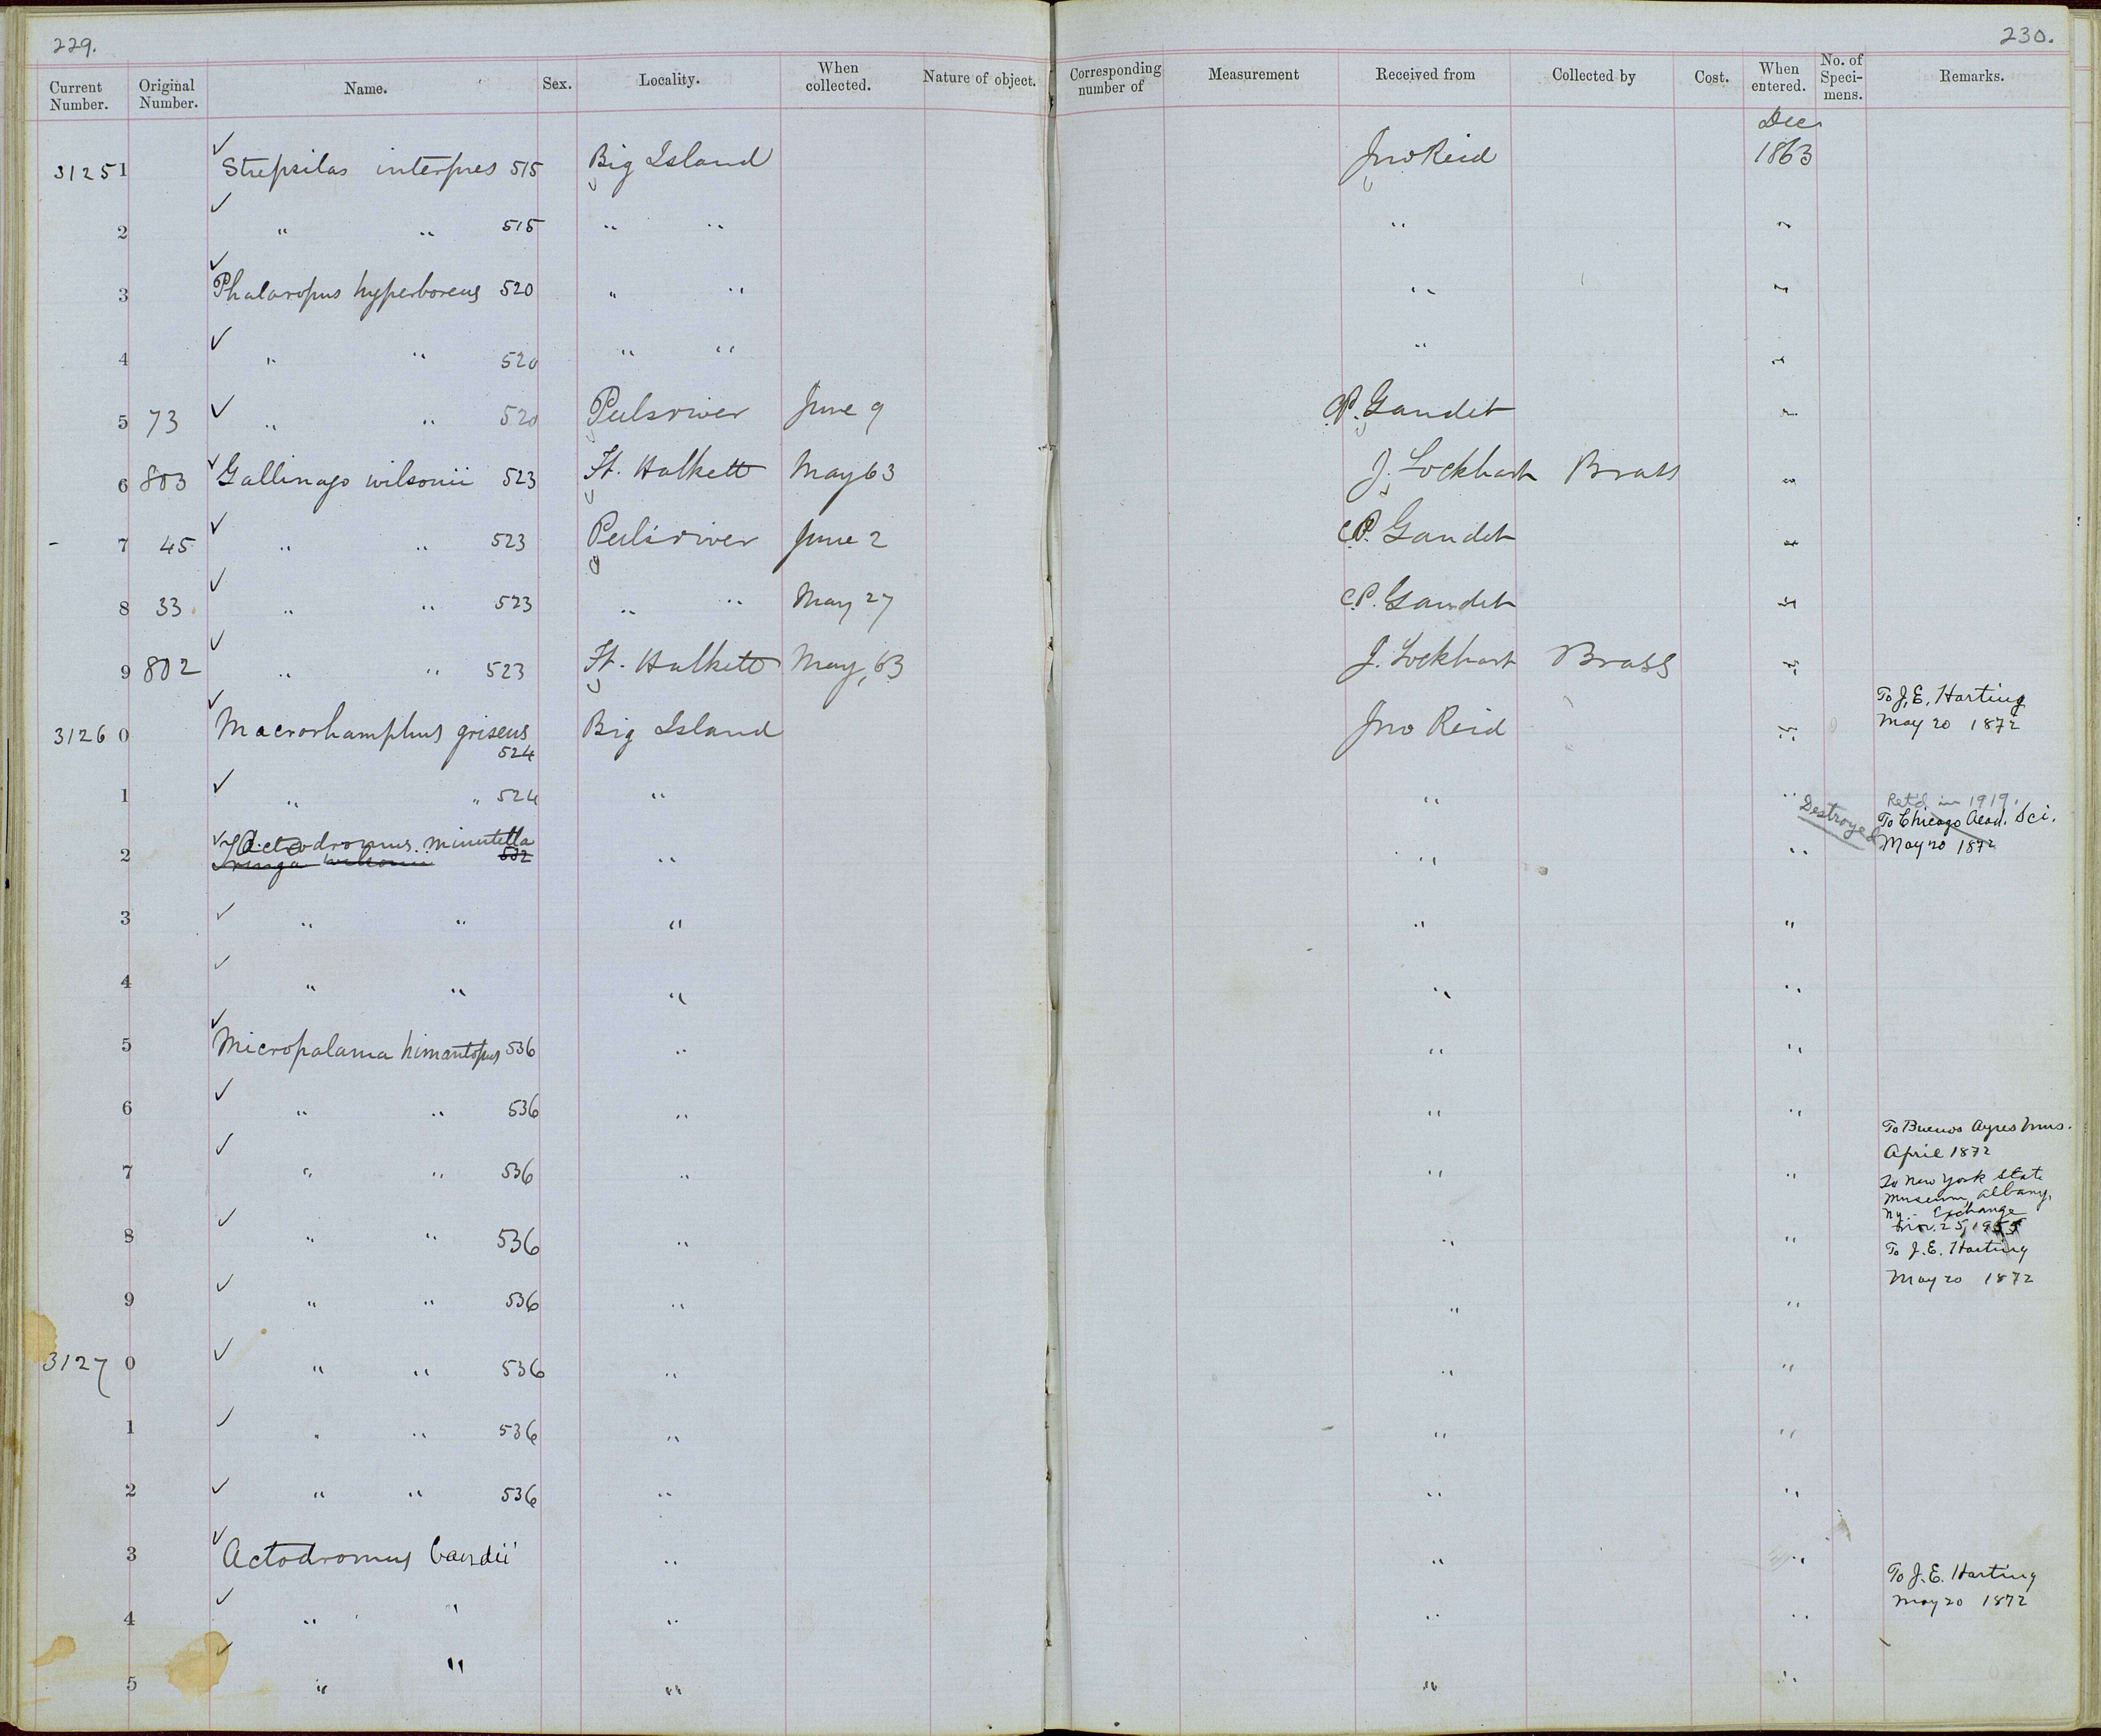 229. 230.
Current Number. Original Number. Name. Sex. Locality. When collected. Nature of object. Corresponding number of Measurement Received from Collected by Cost. When entered. No. of Speci-mens. Remarks.
Dec
31251 ✓ Strepsilas interpres 515 Big Island Jno Reid 1863
2 ✓ " " 515 " " " "
3 ✓ Phalaropus hyperboreus 520 " " " "
4 ✓ " " 520 " " " "
5 73 ✓ " " 520 Peels river June 9 C.P. Gaudet "
6 803 ✓ Gallinago wilsonii 523 Ft. Halkett May 63 J. Lockhart Brass "
- 7 45 ✓ " " 523 Peels river June 2 C.P. Gaudet "
8 33 ✓ " " 523 " " May 27 C.P. Gaudet "
9 802 ✓ " " 523 Ft. Halkett May, 63 J. Lockhart Brass "
To J. E. Harting
31260 ✓ Macrorhamphus griseus 524 Big Island Jno Reid " May 20 1872
1 ✓ " " 524 " " " Ret'd in 1919.
✓ Actodromus minutella Destroyed To Chicago Acad. Sci.
2 Tringa wilsonii 532 " " " May 20 1872
3 ✓ " " " " "
4 ✓ " " " " "
5 ✓ Micropalama himantopus 536 " " "
6 ✓ " " 536 " " "
To Buenos Ayres Mus.
April 1872
7 ✓ " " 536 " " " To New York State
Museum, Albany,
NY - Exchange
8 ✓ " " 536 " " " Nov. 25, 1955
To J. E. Harting
May 20 1872
9 ✓ " " 536 " " "
31270 ✓ " " 536 " " "
1 ✓ " " 536 " " "
2 ✓ " " 536 " " "
3 ✓ Actodromus bairdii " " "
To J. E. Harting
4 ✓ " " " " " May 20 1872
5 ✓ " " " " "